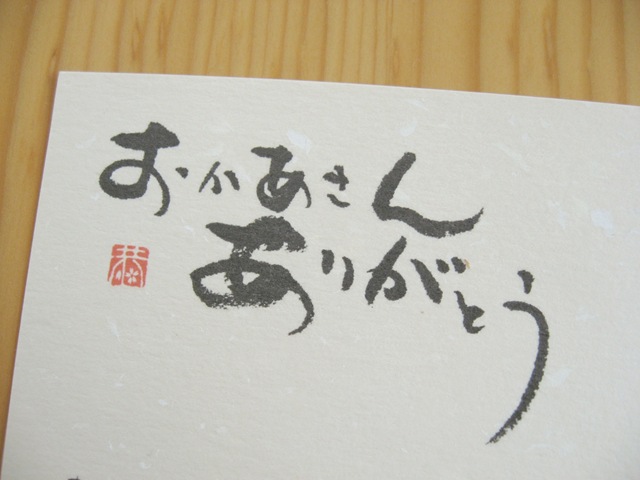 おかあさん
ありがとう